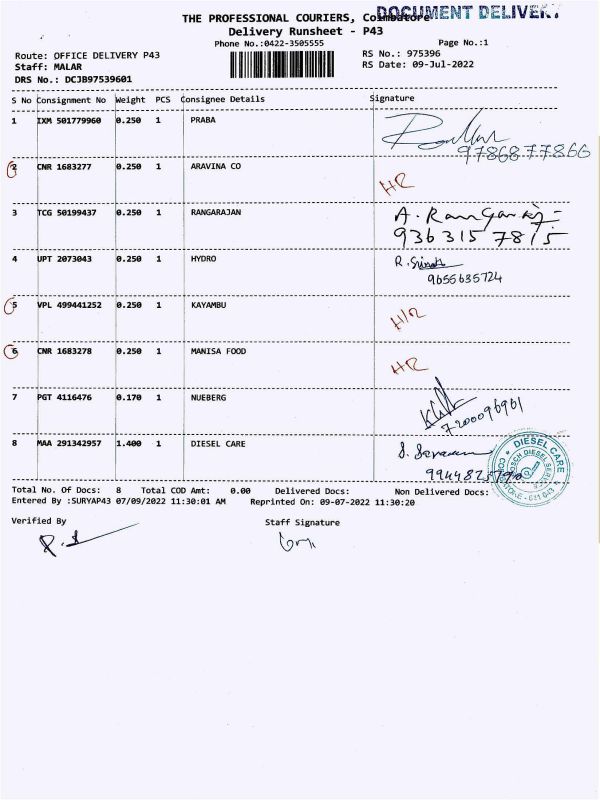 DOCUMENT DELIVERY
THE PROFESSIONAL COURIERS, Coimbatore
Delivery Runsheet - P43
Phone No.:0422-3505555 Page No.:1
Route: OFFICE DELIVERY P43 RS No.: 975396
Staff: MALAR RS Date: 09-Jul-2022
DRS No.: DCJB97539601
S No Consignment No Weight PCS Consignee Details Signature
1 IXM 501779960 0.250 1 PRABA
9786877866
2 CNR 1683277 0.250 1 ARAVINA CO
HR
3 TCG 50199437 0.250 1 RANGARAJAN
9363157815
4 UPT 2073043 0.250 1 HYDRO
9655635724
5 VPL 499441252 0.250 1 KAYAMBU
H/R
6 CNR 1683278 0.250 1 MANISA FOOD
HR
7 PGT 4116476 0.170 1 NUEBERG
7200096961
8 MAA 291342957 1.400 1 DIESEL CARE
DIESEL CARE
Total No. Of Docs: 8 Total COD Amt: 0.00 Delivered Docs: Non Delivered Docs:
Entered By :SURYAP43 07/09/2022 11:30:01 AM Reprinted On: 09-07-2022 11:30:20
Verified By Staff Signature